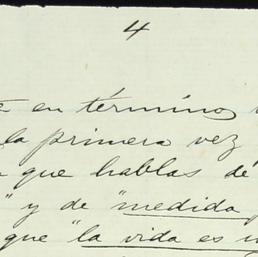 4
en término
la primera vez
que hablas de
" y de "medida
que "la vida es